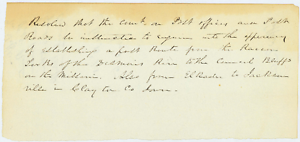 Resolved that the Comt. on Post offices and Post
Roads be instructed to enquire into the expediency
of establishing a post Route from the Racoon
Forks of the Des Moines River to the Council Bluffs
on the Missouri. Also from Elkader to Jackson
ville in Clayton Co Iowa.